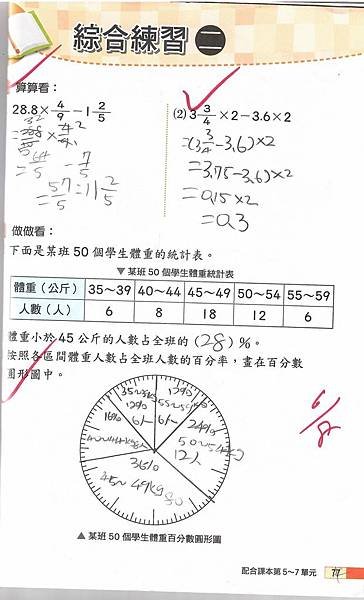 綜合練習 二
算算看:
28.8×4/9-1 2/5
(2) 3 3/4 ×2-3.6×2
=(3 3/4-3.6)×2
=64/5 - 7/5
=3.75-3.6)×2
=57/5=11 2/5
=0.15×2
=0.3
做做看:
下面是某班50個學生體重的統計表。
▼某班50個學生體重統計表
體重(公斤) 35~39 40~44 45~49 50~54 55~59
人數(人) 6 8 18 12 6
體重小於45公斤的人數占全班的(28)%。
按照各區間體重人數占全班人數的百分率,畫在百分數
圓形圖中。
12%
6人
12%
6人
24%
12人
16%
36%
▲某班50個學生體重百分數圓形圖
配合課本第5~7單元 77